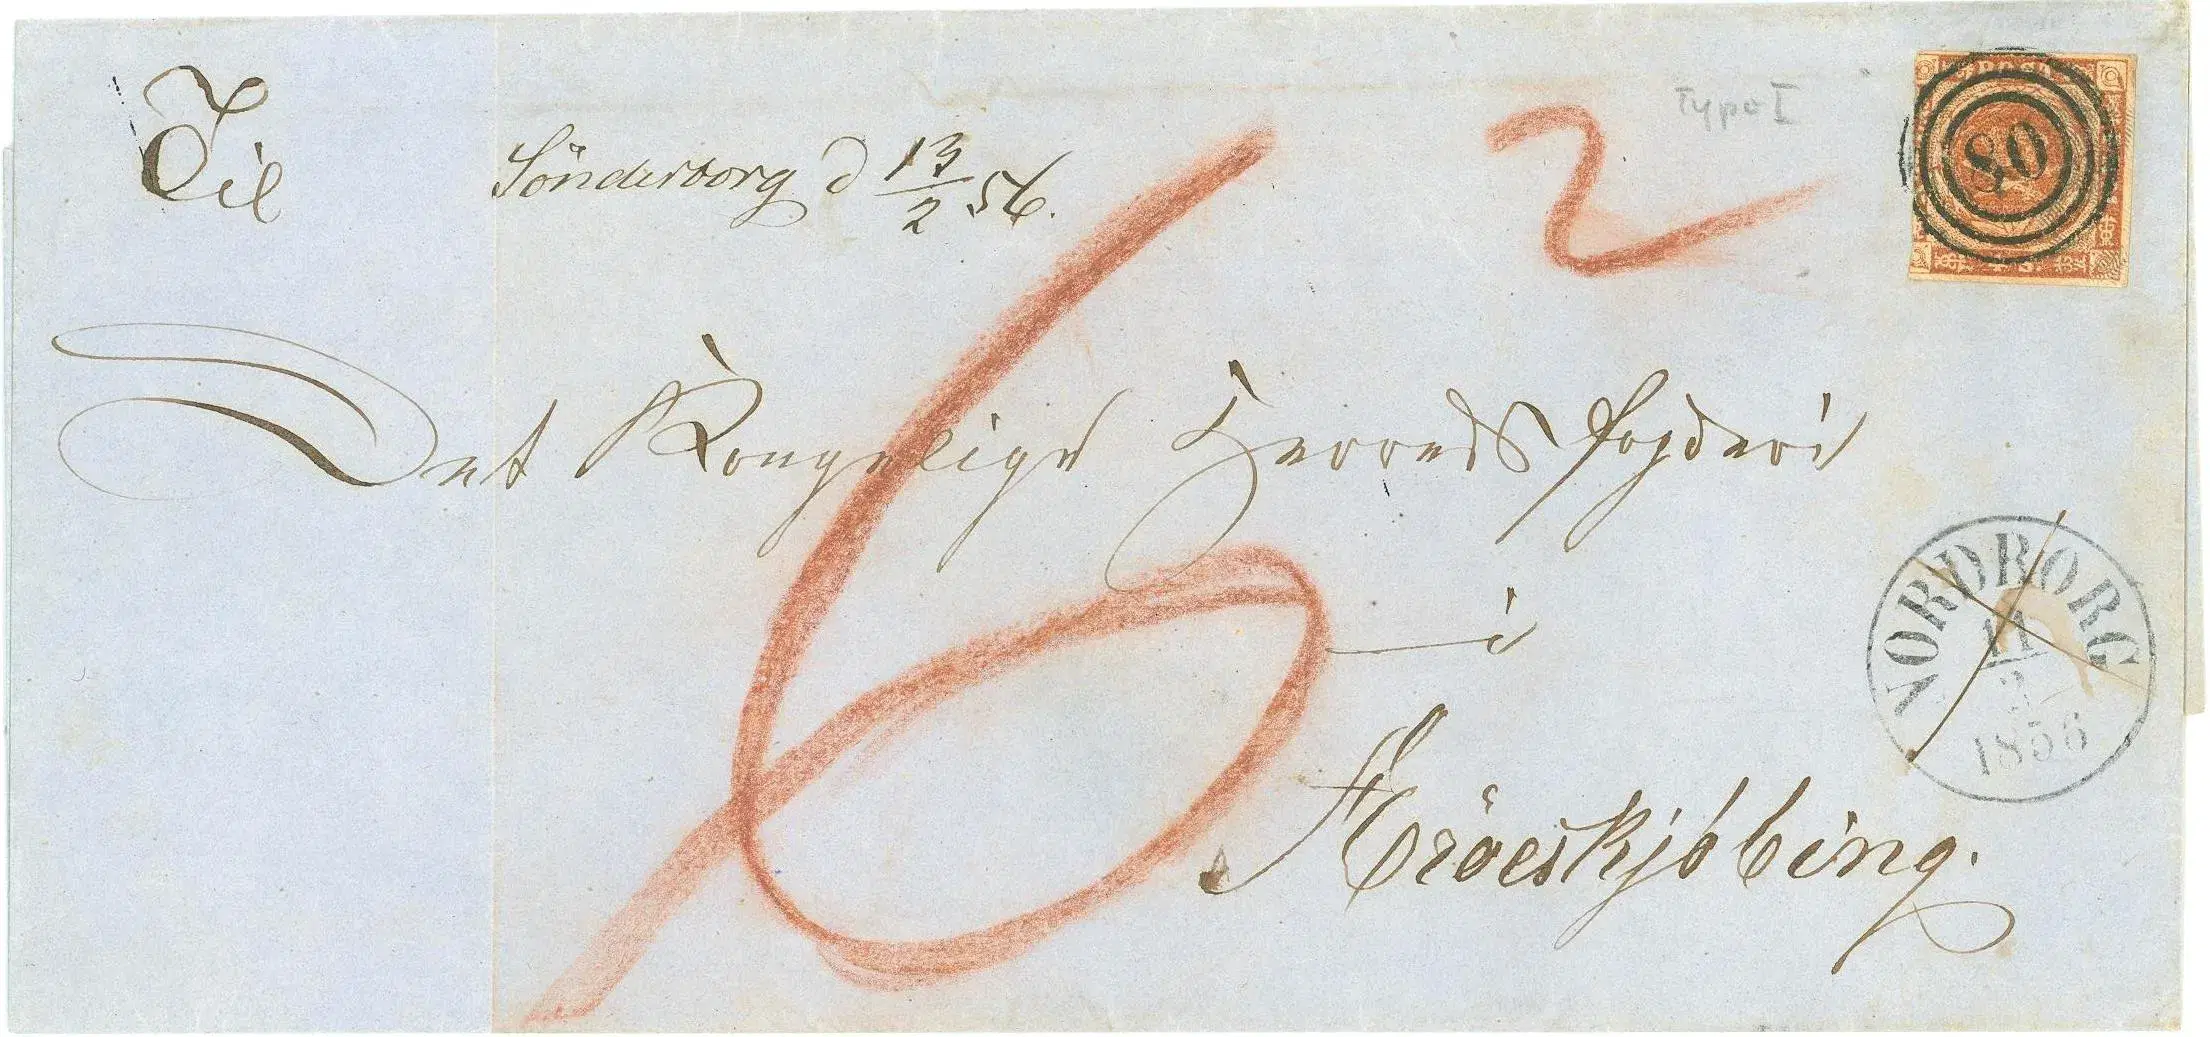 Til
Sönderborg d 13/2 56.
2
Type I
POST
80
6
Det Kongelige Herreds fogderi
i
Æröeskjöbing.
NORDBORG
11
2
1856